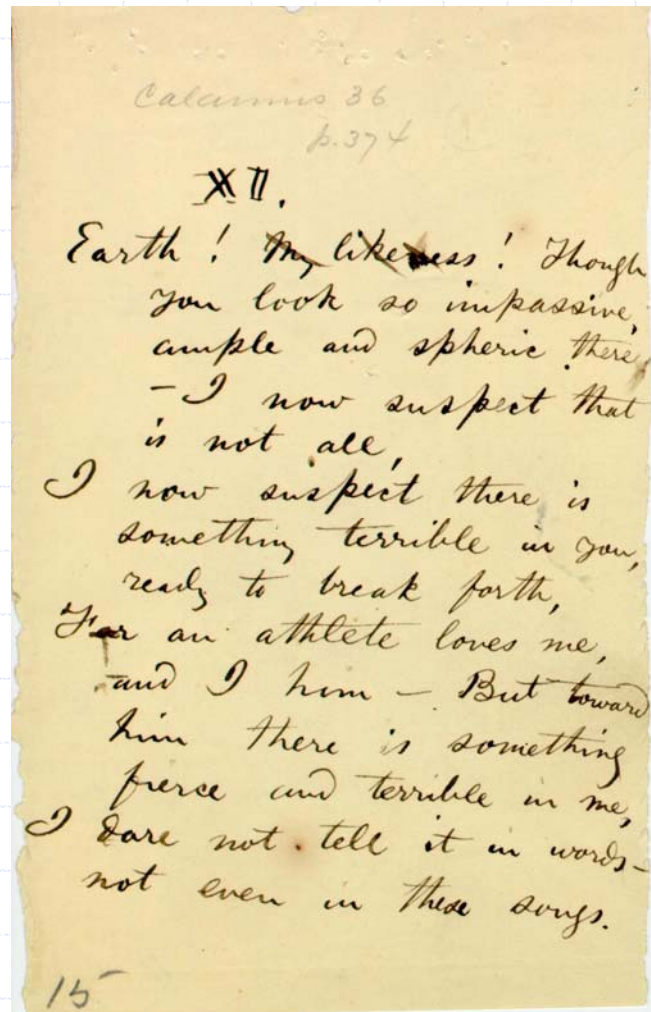 Calamus 36
p. 374
XII.
Earth! My likeness! Though
you look so impassive,
ample and spheric there
– I now suspect that
is not all,
I now suspect there is
something terrible in you,
ready to break forth,
For an athlete loves me,
and I him – But toward
him there is something
fierce and terrible in me,
I dare not tell it in words –
not even in these songs.
15